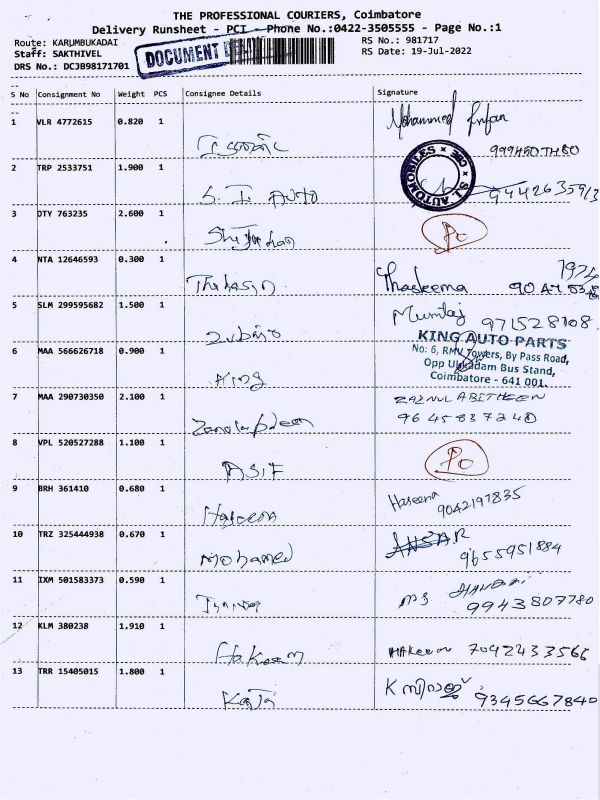 THE PROFESSIONAL COURIERS, Coimbatore
Delivery Runsheet - PCI - Phone No.:0422-3505555 - Page No.:1
Route: KARUMBUKADAI RS No.: 981717
Staff: SAKTHIVEL DOCUMENT RS Date: 19-Jul-2022
DRS No.: DCJB98171701
S No Consignment No Weight PCS Consignee Details Signature
1 VLR 4772615 0.820 1 Mohammed Irfan
2 TRP 2533751 1.900 1 S. I. AUTO S.I. AUTOMOBILES 9442635913
3 DTY 763235 2.600 1
4 NTA 12646593 0.300 1 Thaskeema
5 SLM 299595682 1.500 1 Mumtaj 971528108
6 MAA 566626718 0.900 1 King KING AUTO PARTS
No: 6, RMV Towers, By Pass Road,
Opp Ukkadam Bus Stand,
Coimbatore - 641 001.
7 MAA 290730350 2.100 1 ZAINUL ABITHEEN
9645837240
8 VPL 520527288 1.100 1 ASIF
9 BRH 361410 0.680 1 Haseena
9042197835
10 TRZ 325444938 0.670 1 Mohamed ANSAR
9655951884
11 IXM 501583373 0.590 1
9943807780
12 KLM 380238 1.910 1 Hakeem HAKeem 7092433566
13 TRR 15405015 1.800 1 K 9345667840